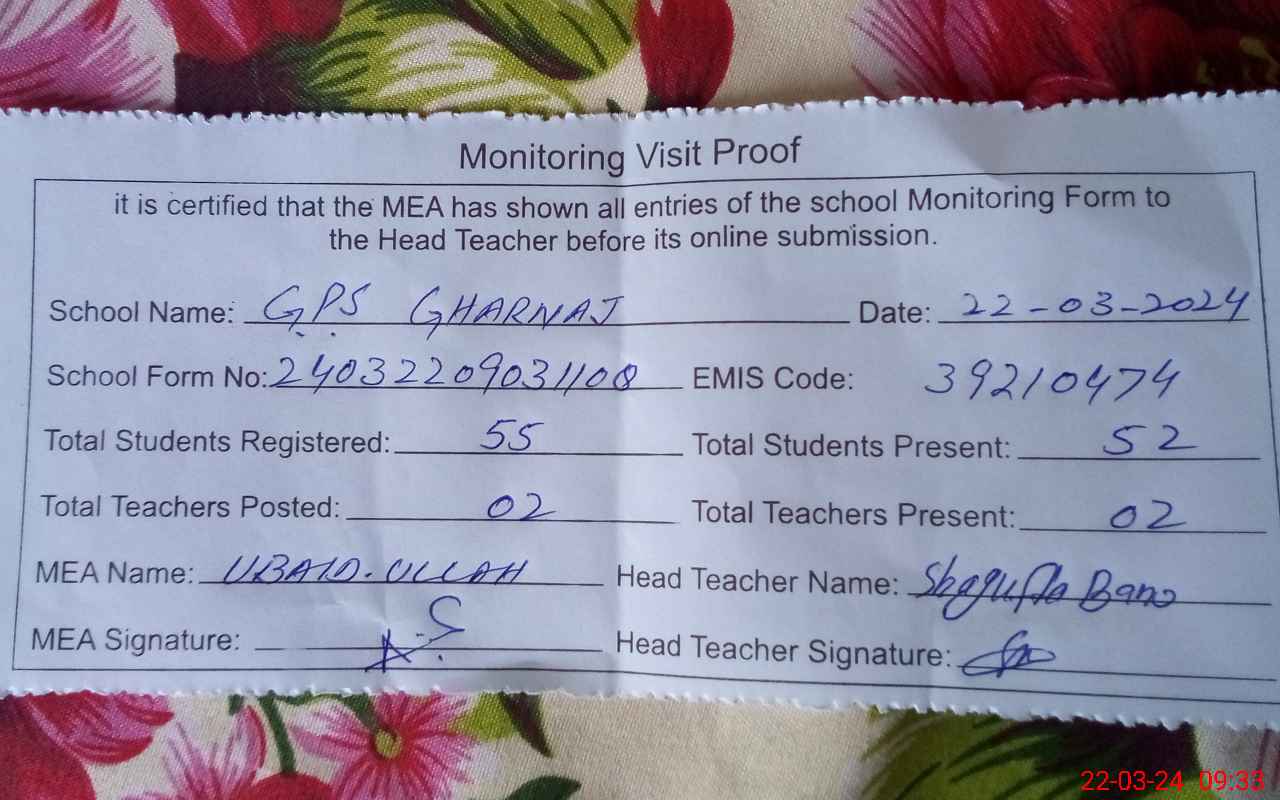 Monitoring Visit Proof
it is certified that the MEA has shown all entries of the school Monitoring Form to
the Head Teacher before its online submission.
School Name: GPS GHARNAJ Date: 22-03-2024
School Form No: 24032209031108 EMIS Code: 39210474
Total Students Registered: 55 Total Students Present: 52
Total Teachers Posted: 02 Total Teachers Present: 02
MEA Name: UBAID.ULLAH Head Teacher Name: Shagufta Bano
MEA Signature: Head Teacher Signature:
22-03-24 09:33